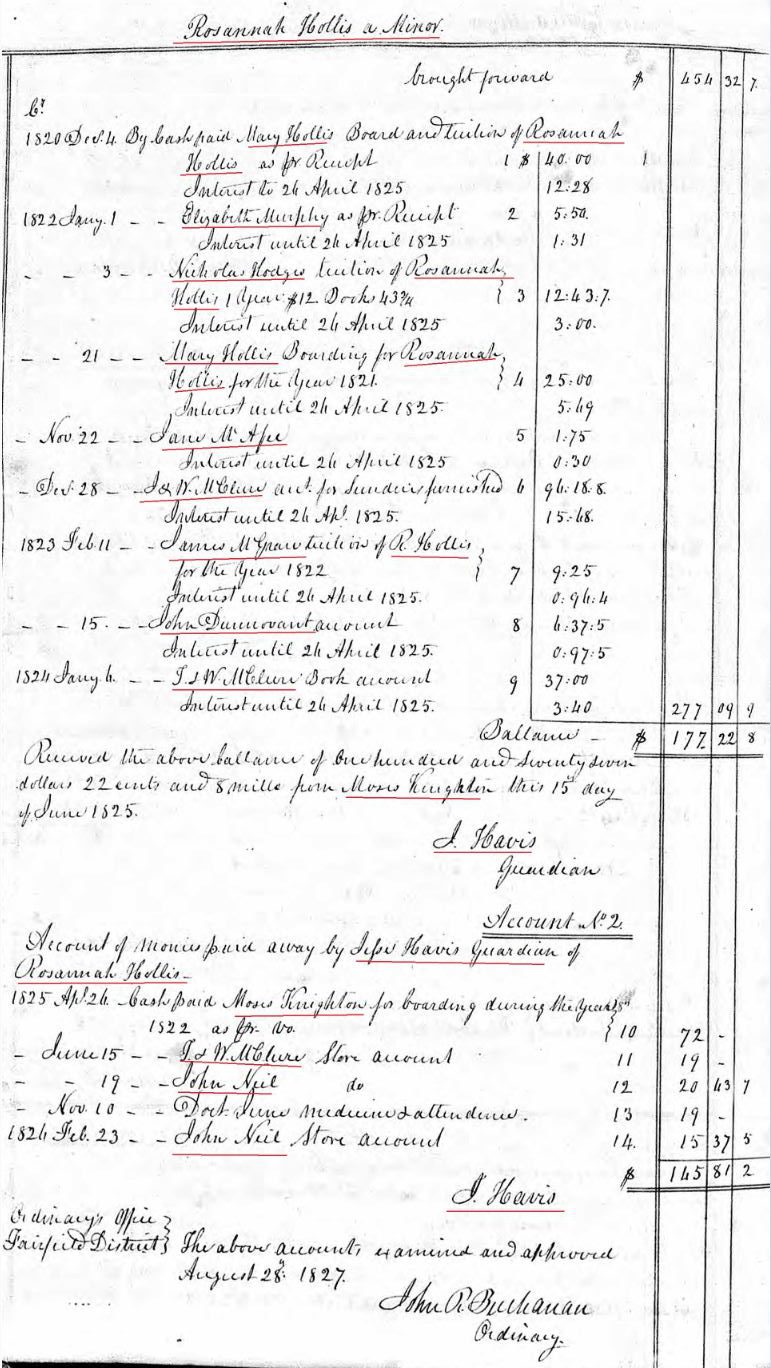 Rosannah Hollis a Minor.
brought forward $ 454 32 7
Cr.
1820 Decr. 4. By Cash paid Mary Hollis Board and tuition of Rosannah
Hollis as pr Receipt 1 $ 40:00
Interest to 26 April 1825 12:28
1822 Jany. 1 - - Elizabeth Murphy as pr. Receipt 2 5:50.
Interest until 26 April 1825 1:31
- - 3 - - Nicholas Hodges tuition of Rosannah
Hollis 1 Year $12. Books 43¾ } 3 12:43:7.
Interest until 26 April 1825 3:00.
- - 21 - - Mary Hollis Boarding for Rosannah
Hollis for the Year 1821. } 4 25:00
Interest until 26 April 1825. 5:69
- Nov. 22 - - Jane McAfee 5 1:75
Interest until 26 April 1825 0:30
- Decr. 28 - - J & W. McClure acct. for Sundries furnished 6 96:18:8.
Interest until 26 Apl. 1825. 15:68.
1823 Feb. 11 - - James McGraw tuition of R. Hollis
for the Year 1822 } 7 9:25
Interest until 26 April 1825. 0:96:4
- - 15. - - John Dunnovant account 8 6:37:5
Interest until 26 April 1825. 0:97:5
1824 Jany. 6 - - J. & W McClure Book account 9 37:00
Interest until 26 April 1825. 3:40 277 09 9
Ballance - $ 177 22 8
Received the above ballance of One hundred and Seventy Seven
dollars 22 cents and 8 mills from Moses Knighton this 15th day
of June 1825.
J. Havis
Guardian
Account No. 2.
Account of monies paid away by Jesse Havis Guardian of
Rosannah Hollis -
1825 Apl. 26. Cash paid Moses Knighton for boarding during the Year
1822 as pr. Vo. } 10 72 -
- June 15 - - J. & W McClure Store account 11 19 -
- - 19 - - John Neil do 12 20 43 7
- Nov. 10 - - Doct. June medicine & attendence. 13 19 -
1826 Feb. 23 - - John Neil Store account 14. 15 37 5
$ 145 81 2
J. Havis
Ordinary's Office }
Fairfield District } The above accounts examined and approved
August 28th. 1827.
John R. Buchanan
Ordinary.